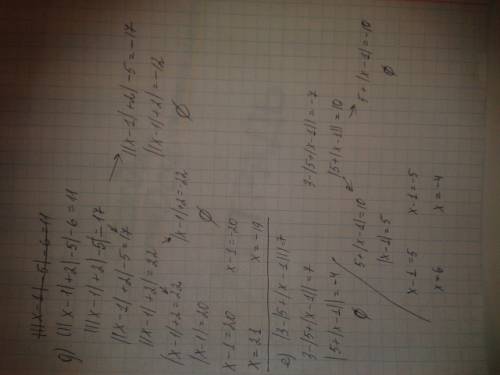 |||x-1|-5|-6=11
д) |||x-1|+2|-5|-6=11
|||x-1|+2|-5|=17
||x-1|+2|-5=17
||x-1|+2|-5=-17
||x-1|+2|=22
||x-1|+2|=-12
∅
|x-1|+2=22
|x-1|+2=-22
|x-1|=20
∅
x-1=20
x-1=-20
x=21
x=-19
е) |3-|5+|x-1||=7
3-|5+|x-1||=7
3-|5+|x-1||=-7
|5+|x-1||=-4
|5+|x-1||=10
∅
5+|x-1|=10
5+|x-1|=-10
|x-1|=5
∅
x-1=5
x-1=-5
x=6
x=-4